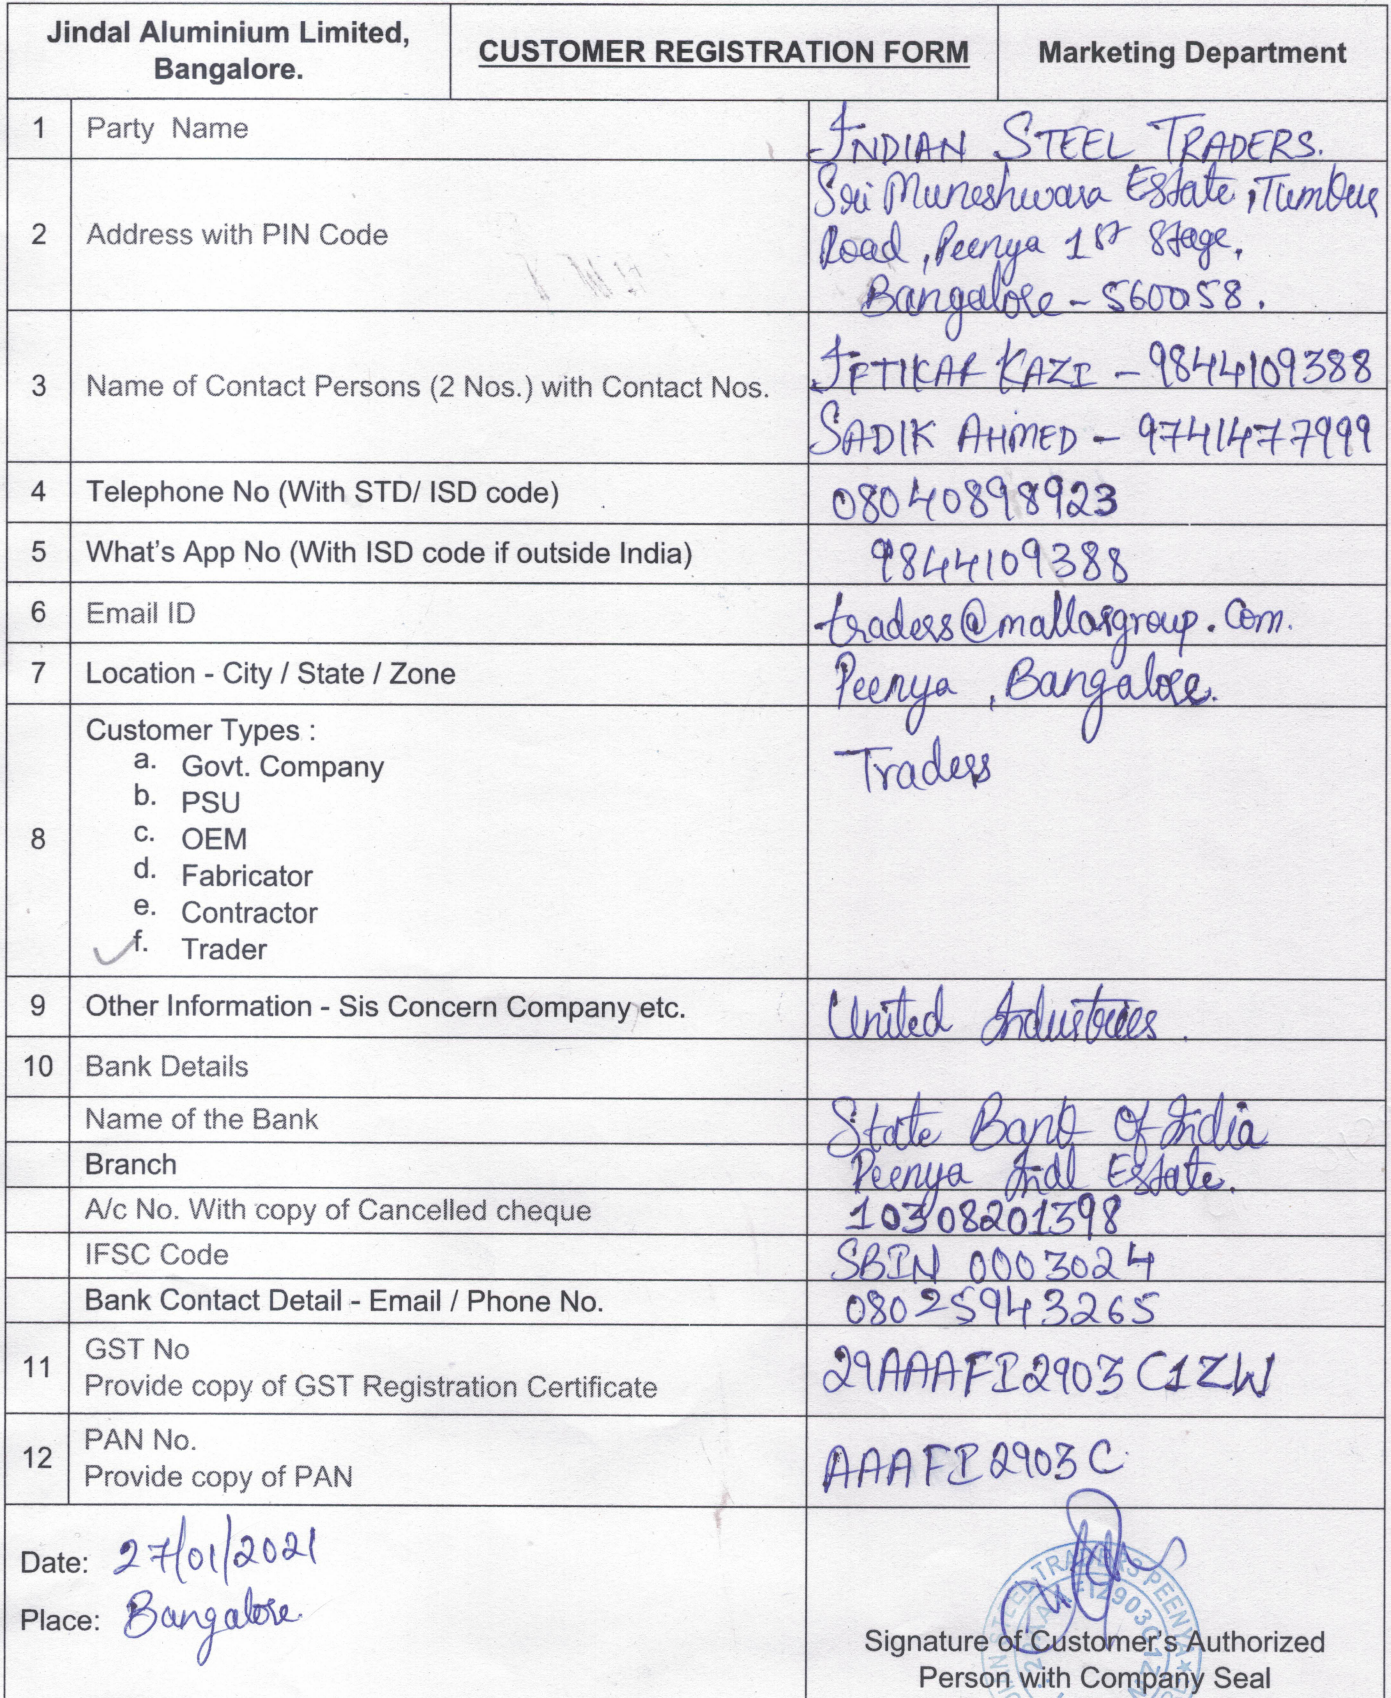 Jindal Aluminium Limited,
Bangalore.
CUSTOMER REGISTRATION FORM
Marketing Department
1 Party Name INDIAN STEEL TRADERS.
2 Address with PIN Code
Sri Muneshwara Estate, Tumkur
Road, Peenya 1st Stage,
Bangalore - 560058.
3 Name of Contact Persons (2 Nos.) with Contact Nos.
IFTIKAR KAZI - 9844109388
SADIK AHMED - 9741477999
4 Telephone No (With STD/ ISD code) 08040898923
5 What's App No (With ISD code if outside India) 9844109388
6 Email ID traders@mallasgroup.com.
7 Location - City / State / Zone Peenya, Bangalore.
8 Customer Types : Traders
a. Govt. Company
b. PSU
c. OEM
d. Fabricator
e. Contractor
f. Trader
9 Other Information - Sis Concern Company etc. United Industries.
10 Bank Details
Name of the Bank State Bank Of India
Branch Peenya Indl Estate.
A/c No. With copy of Cancelled cheque 10308201398
IFSC Code SBIN 0003024
Bank Contact Detail - Email / Phone No. 08025943265
11 GST No
Provide copy of GST Registration Certificate
29AAAFI2903C1ZW
12 PAN No.
Provide copy of PAN
AAAFI2903C
Date: 27/01/2021
Place: Bangalore
Signature of Customer's Authorized
Person with Company Seal